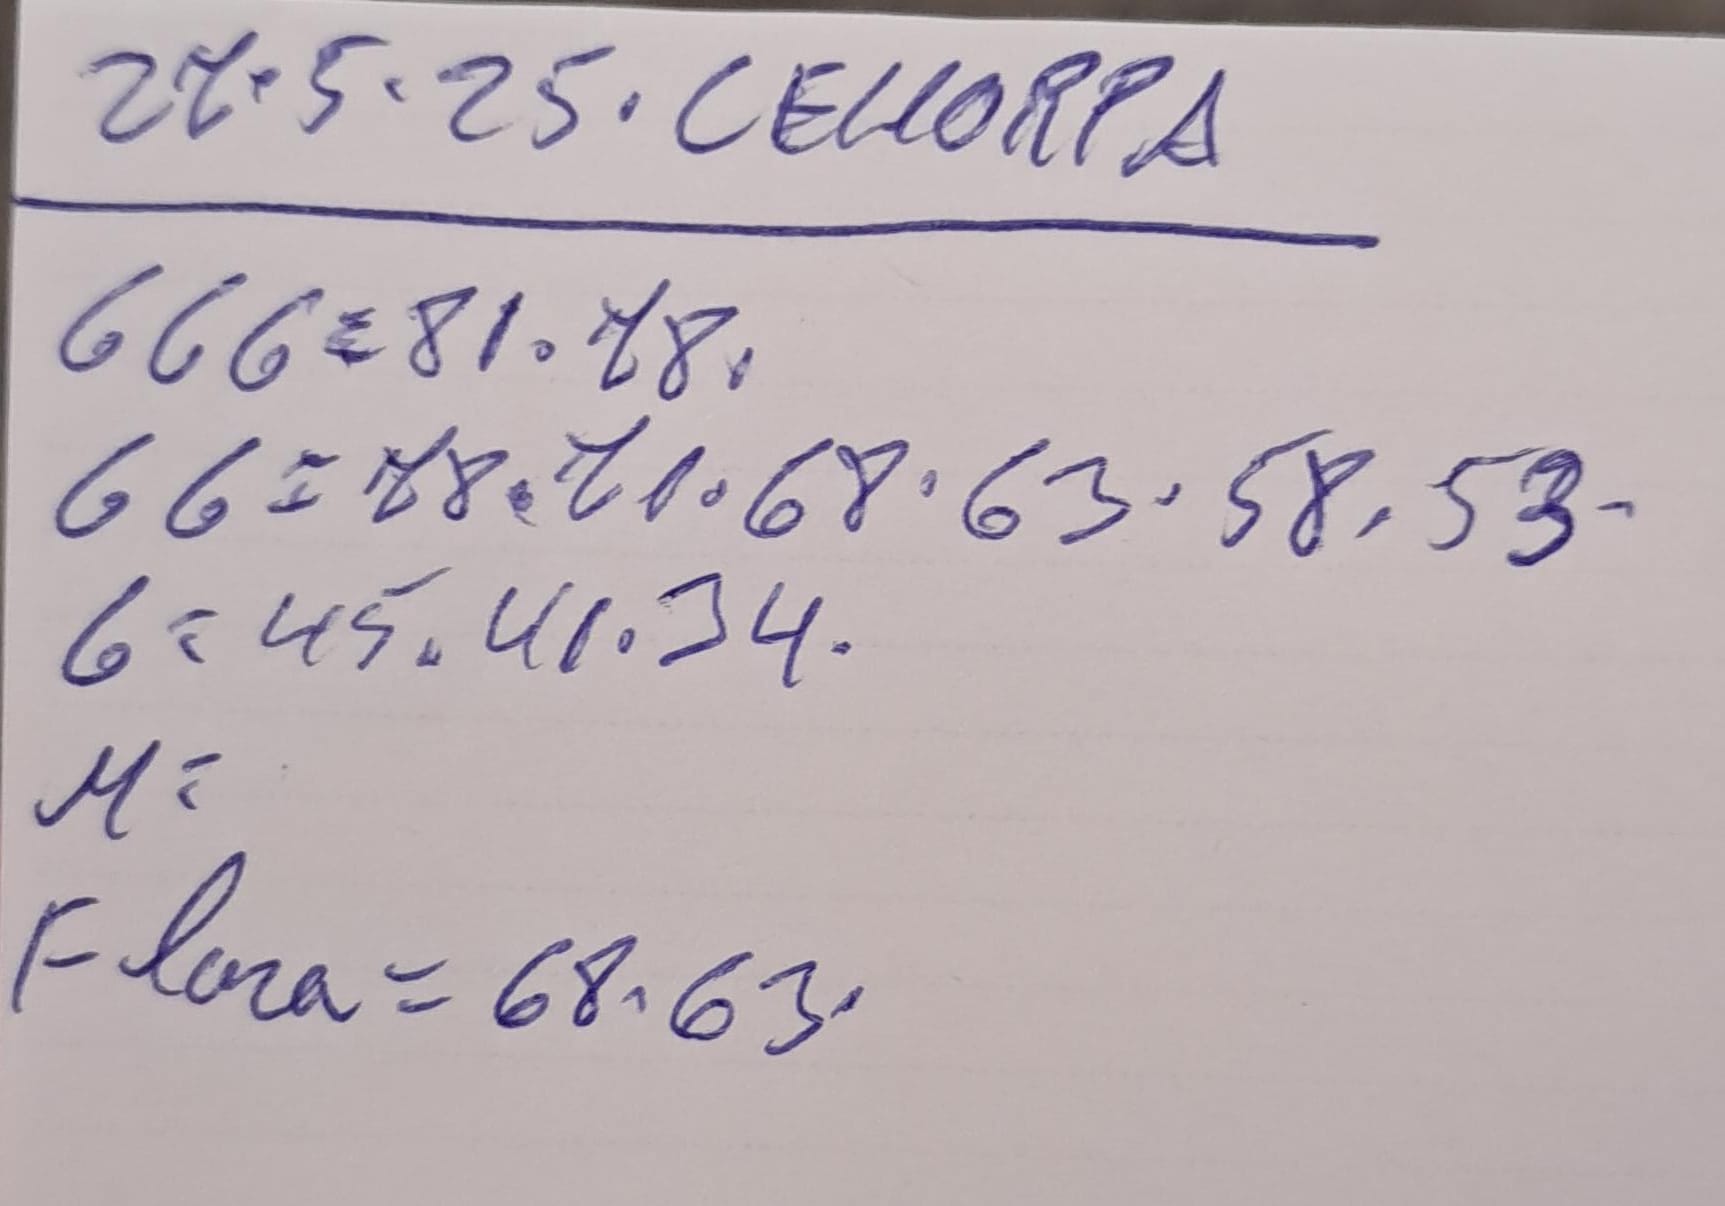 27.5.25. CELLORPA
666=81.78.
66=78.71.68.63.58.53.
6=45.41.34.
M=
Flora=68.63.